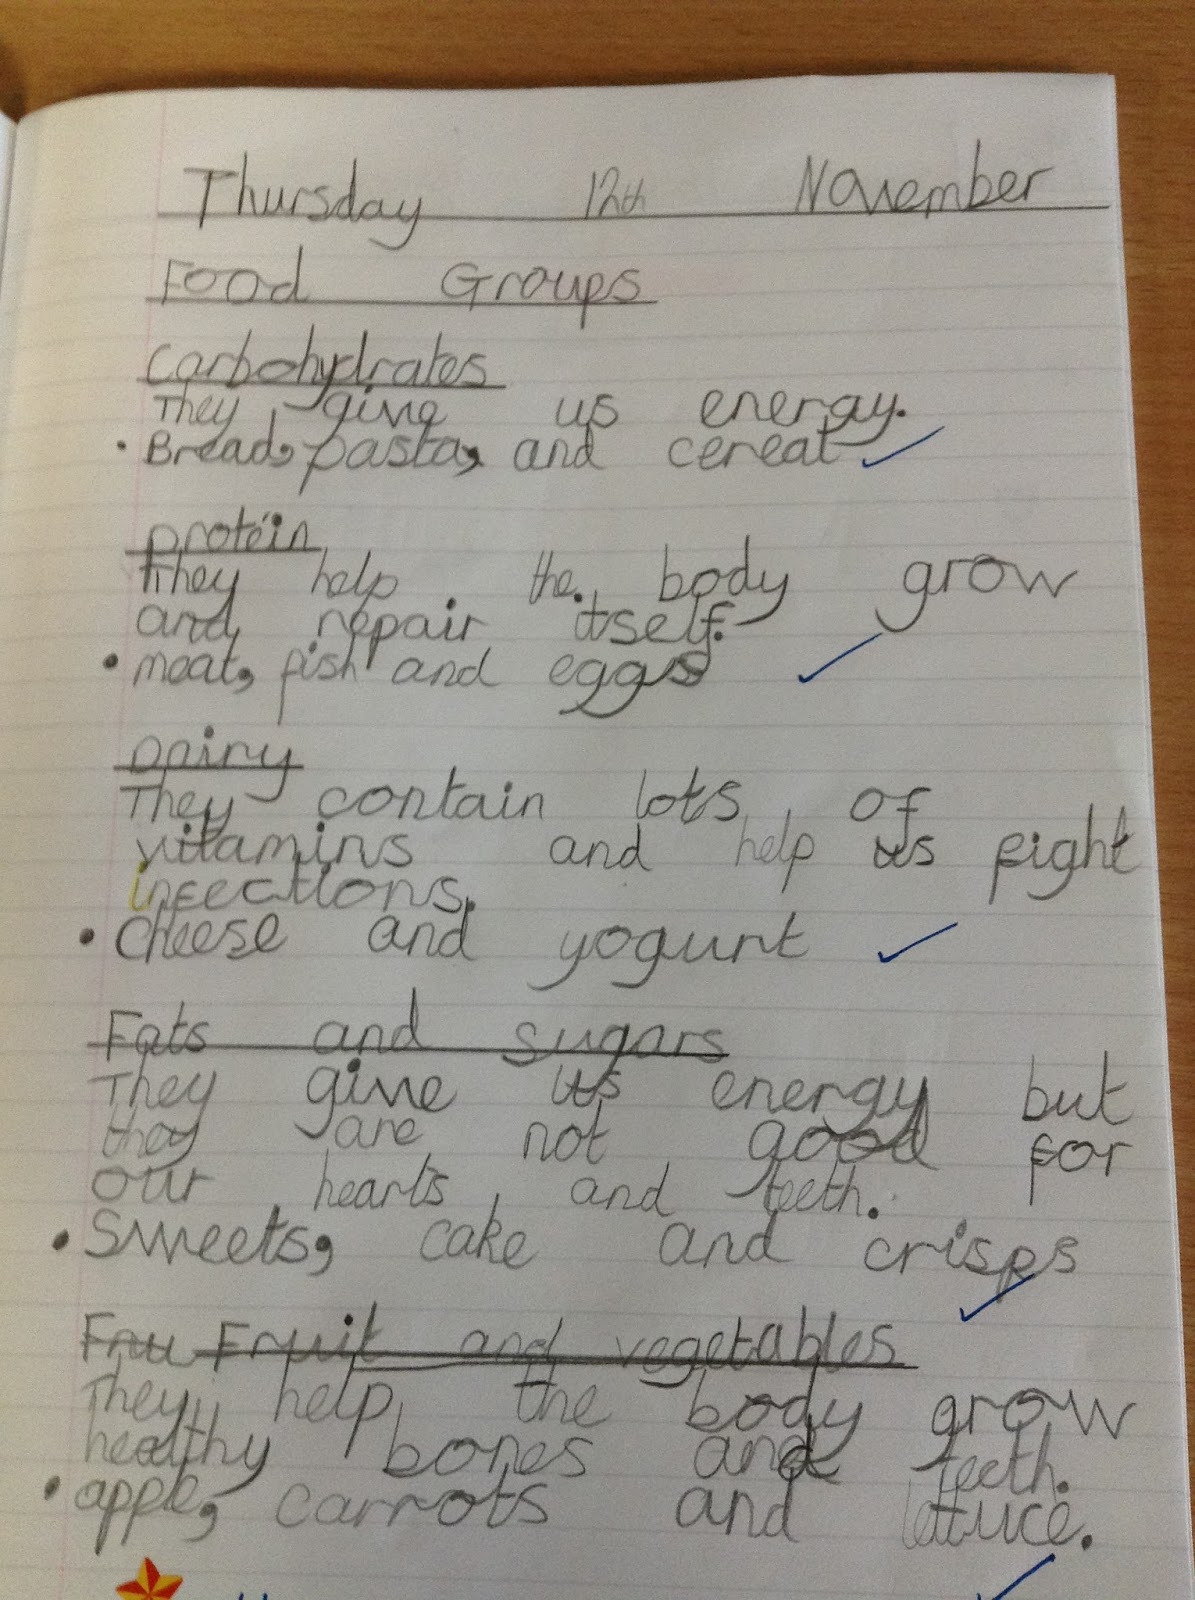 Thursday 12th November
Food Groups
Carbohydrates
They give us energy.
• Bread, pasta, and cereal
protein
They help the. body grow
and repair itself.
• meat, fish and eggs
Dairy
They contain lots of
vitamins and help us fight
infections.
• cheese and yogurt
Fats and sugars
They give us energy but
they are not good for
our hearts and teeth.
• Sweets, cake and crisps
Fru Fruit and vegetables
They help the body grow
healthy bones and teeth.
• apple, carrots and lettuce.